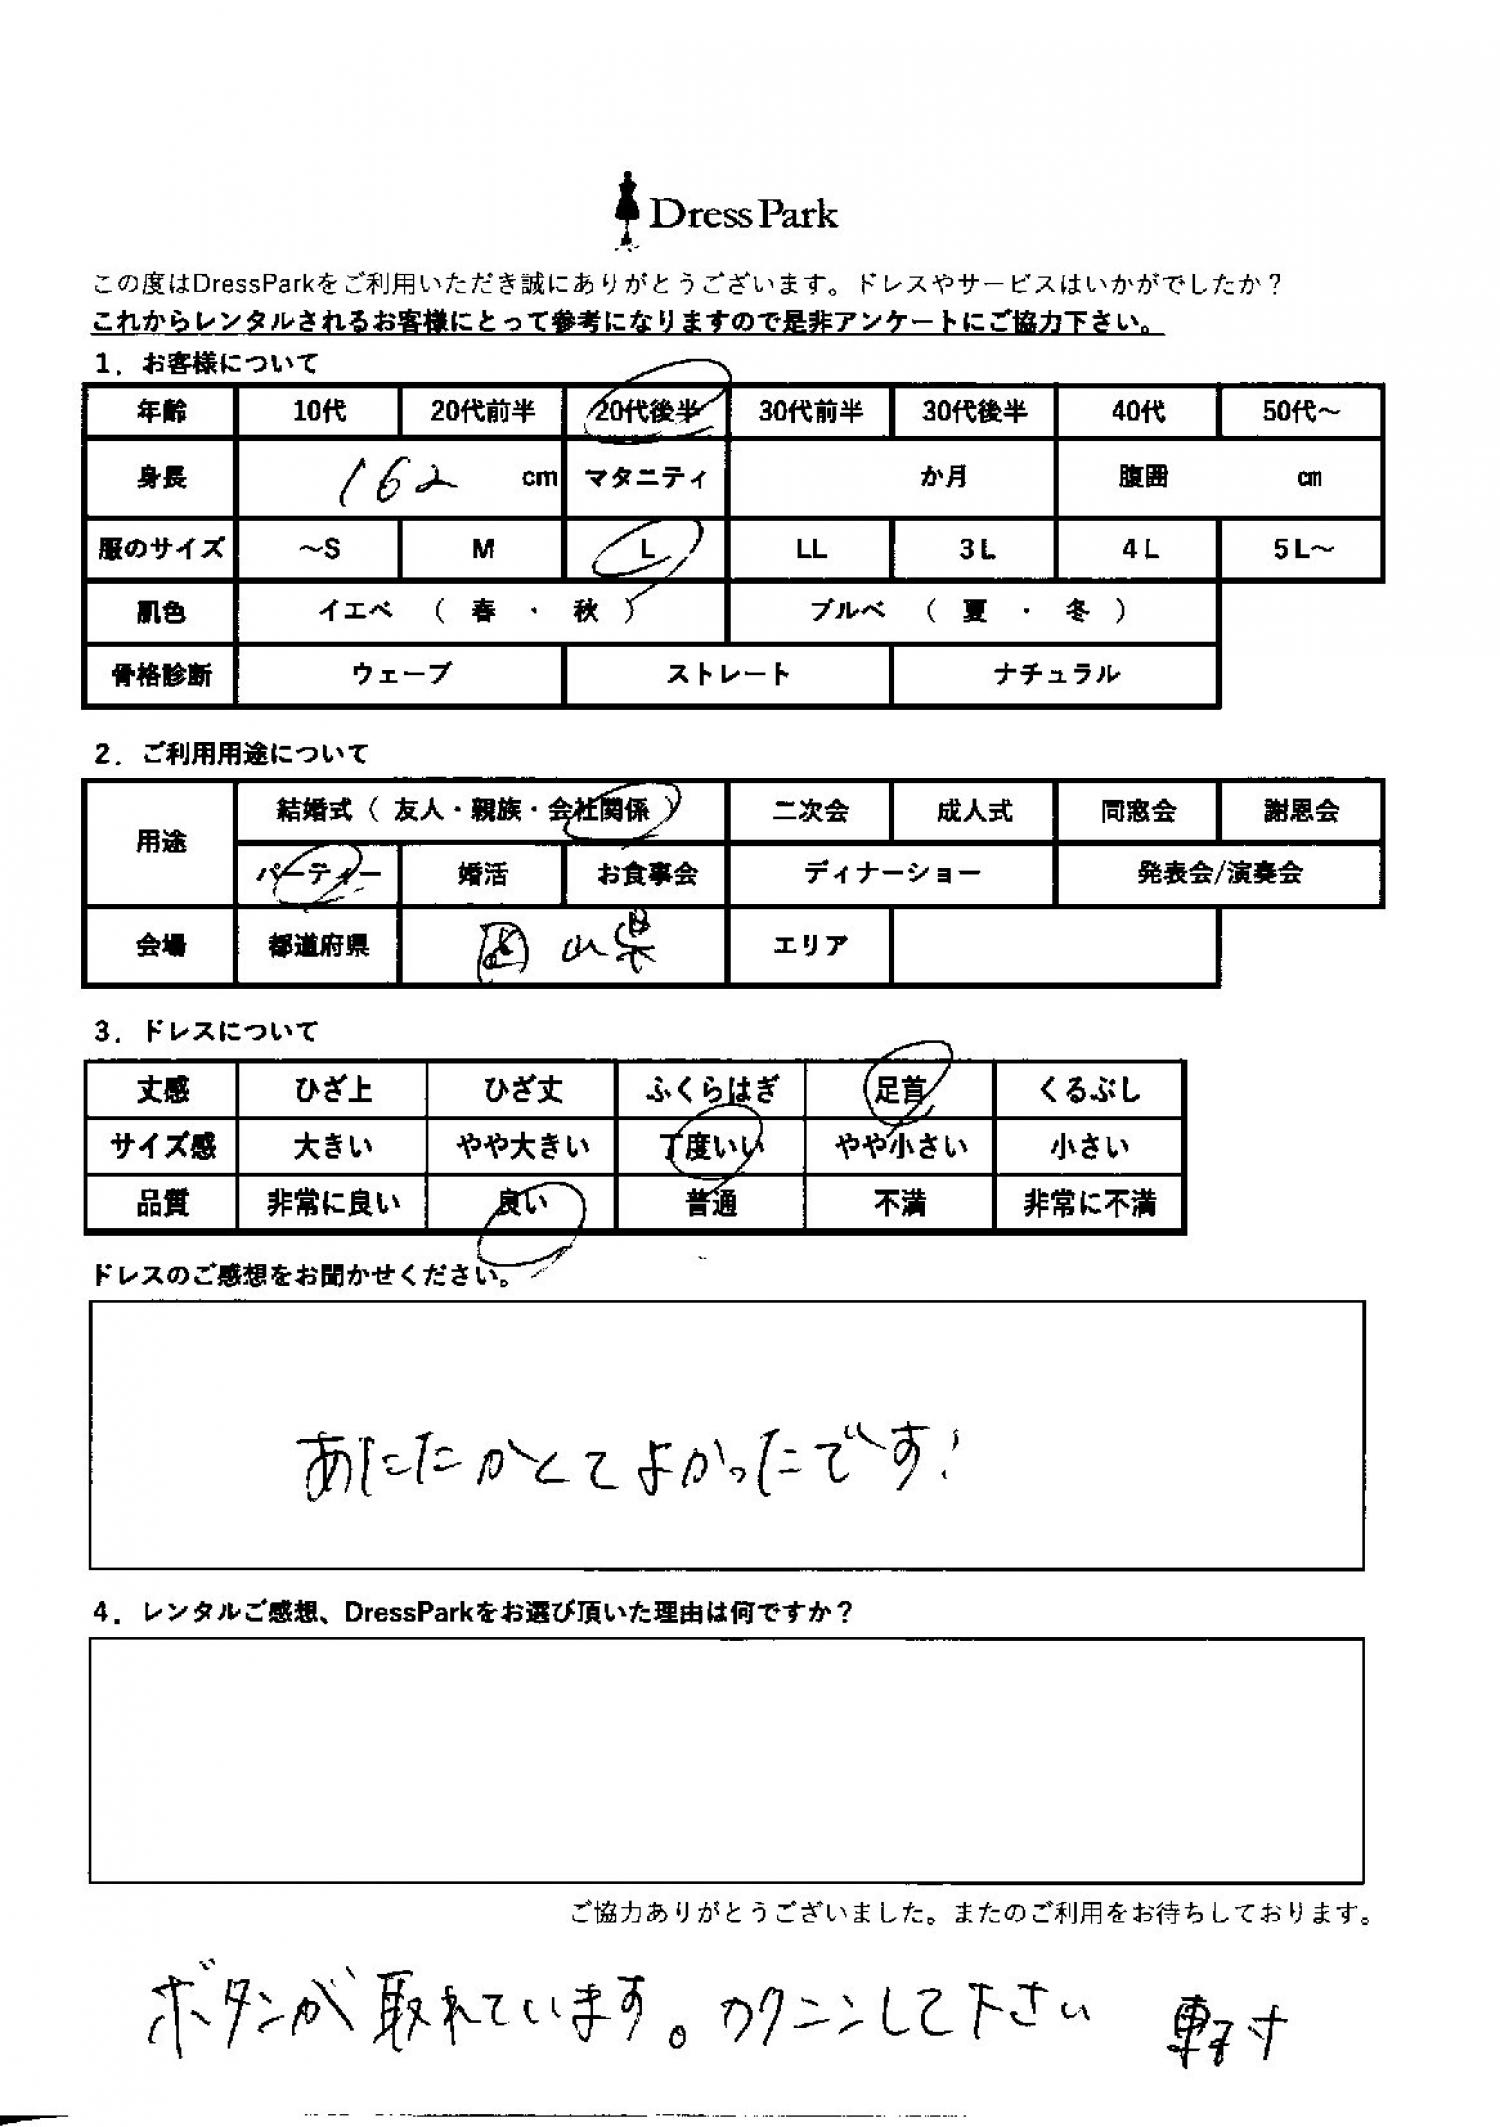 DressPark
この度はDressParkをご利用いただき誠にありがとうございます。ドレスやサービスはいかがでしたか？
これからレンタルされるお客様にとって参考になりますので是非アンケートにご協力下さい。
1．お客様について
年齢 10代 20代前半 20代後半 30代前半 30代後半 40代 50代～
身長 162 cm マタニティ か月 腹囲 cm
服のサイズ ～S M L LL 3L 4L 5L～
肌色 イエベ （ 春 ・ 秋 ） ブルベ （ 夏 ・ 冬 ）
骨格診断 ウェーブ ストレート ナチュラル
2．ご利用用途について
用途 結婚式（ 友人・親族・会社関係 ） 二次会 成人式 同窓会 謝恩会
パーティー 婚活 お食事会 ディナーショー 発表会/演奏会
会場 都道府県 岡山県 エリア
3．ドレスについて
丈感 ひざ上 ひざ丈 ふくらはぎ 足首 くるぶし
サイズ感 大きい やや大きい 丁度いい やや小さい 小さい
品質 非常に良い 良い 普通 不満 非常に不満
ドレスのご感想をお聞かせください。
あたたかくてよかったです！
4．レンタルご感想、DressParkをお選び頂いた理由は何ですか？
ご協力ありがとうございました。またのご利用をお待ちしております。
ボタンが取れています。カクニンして下さい